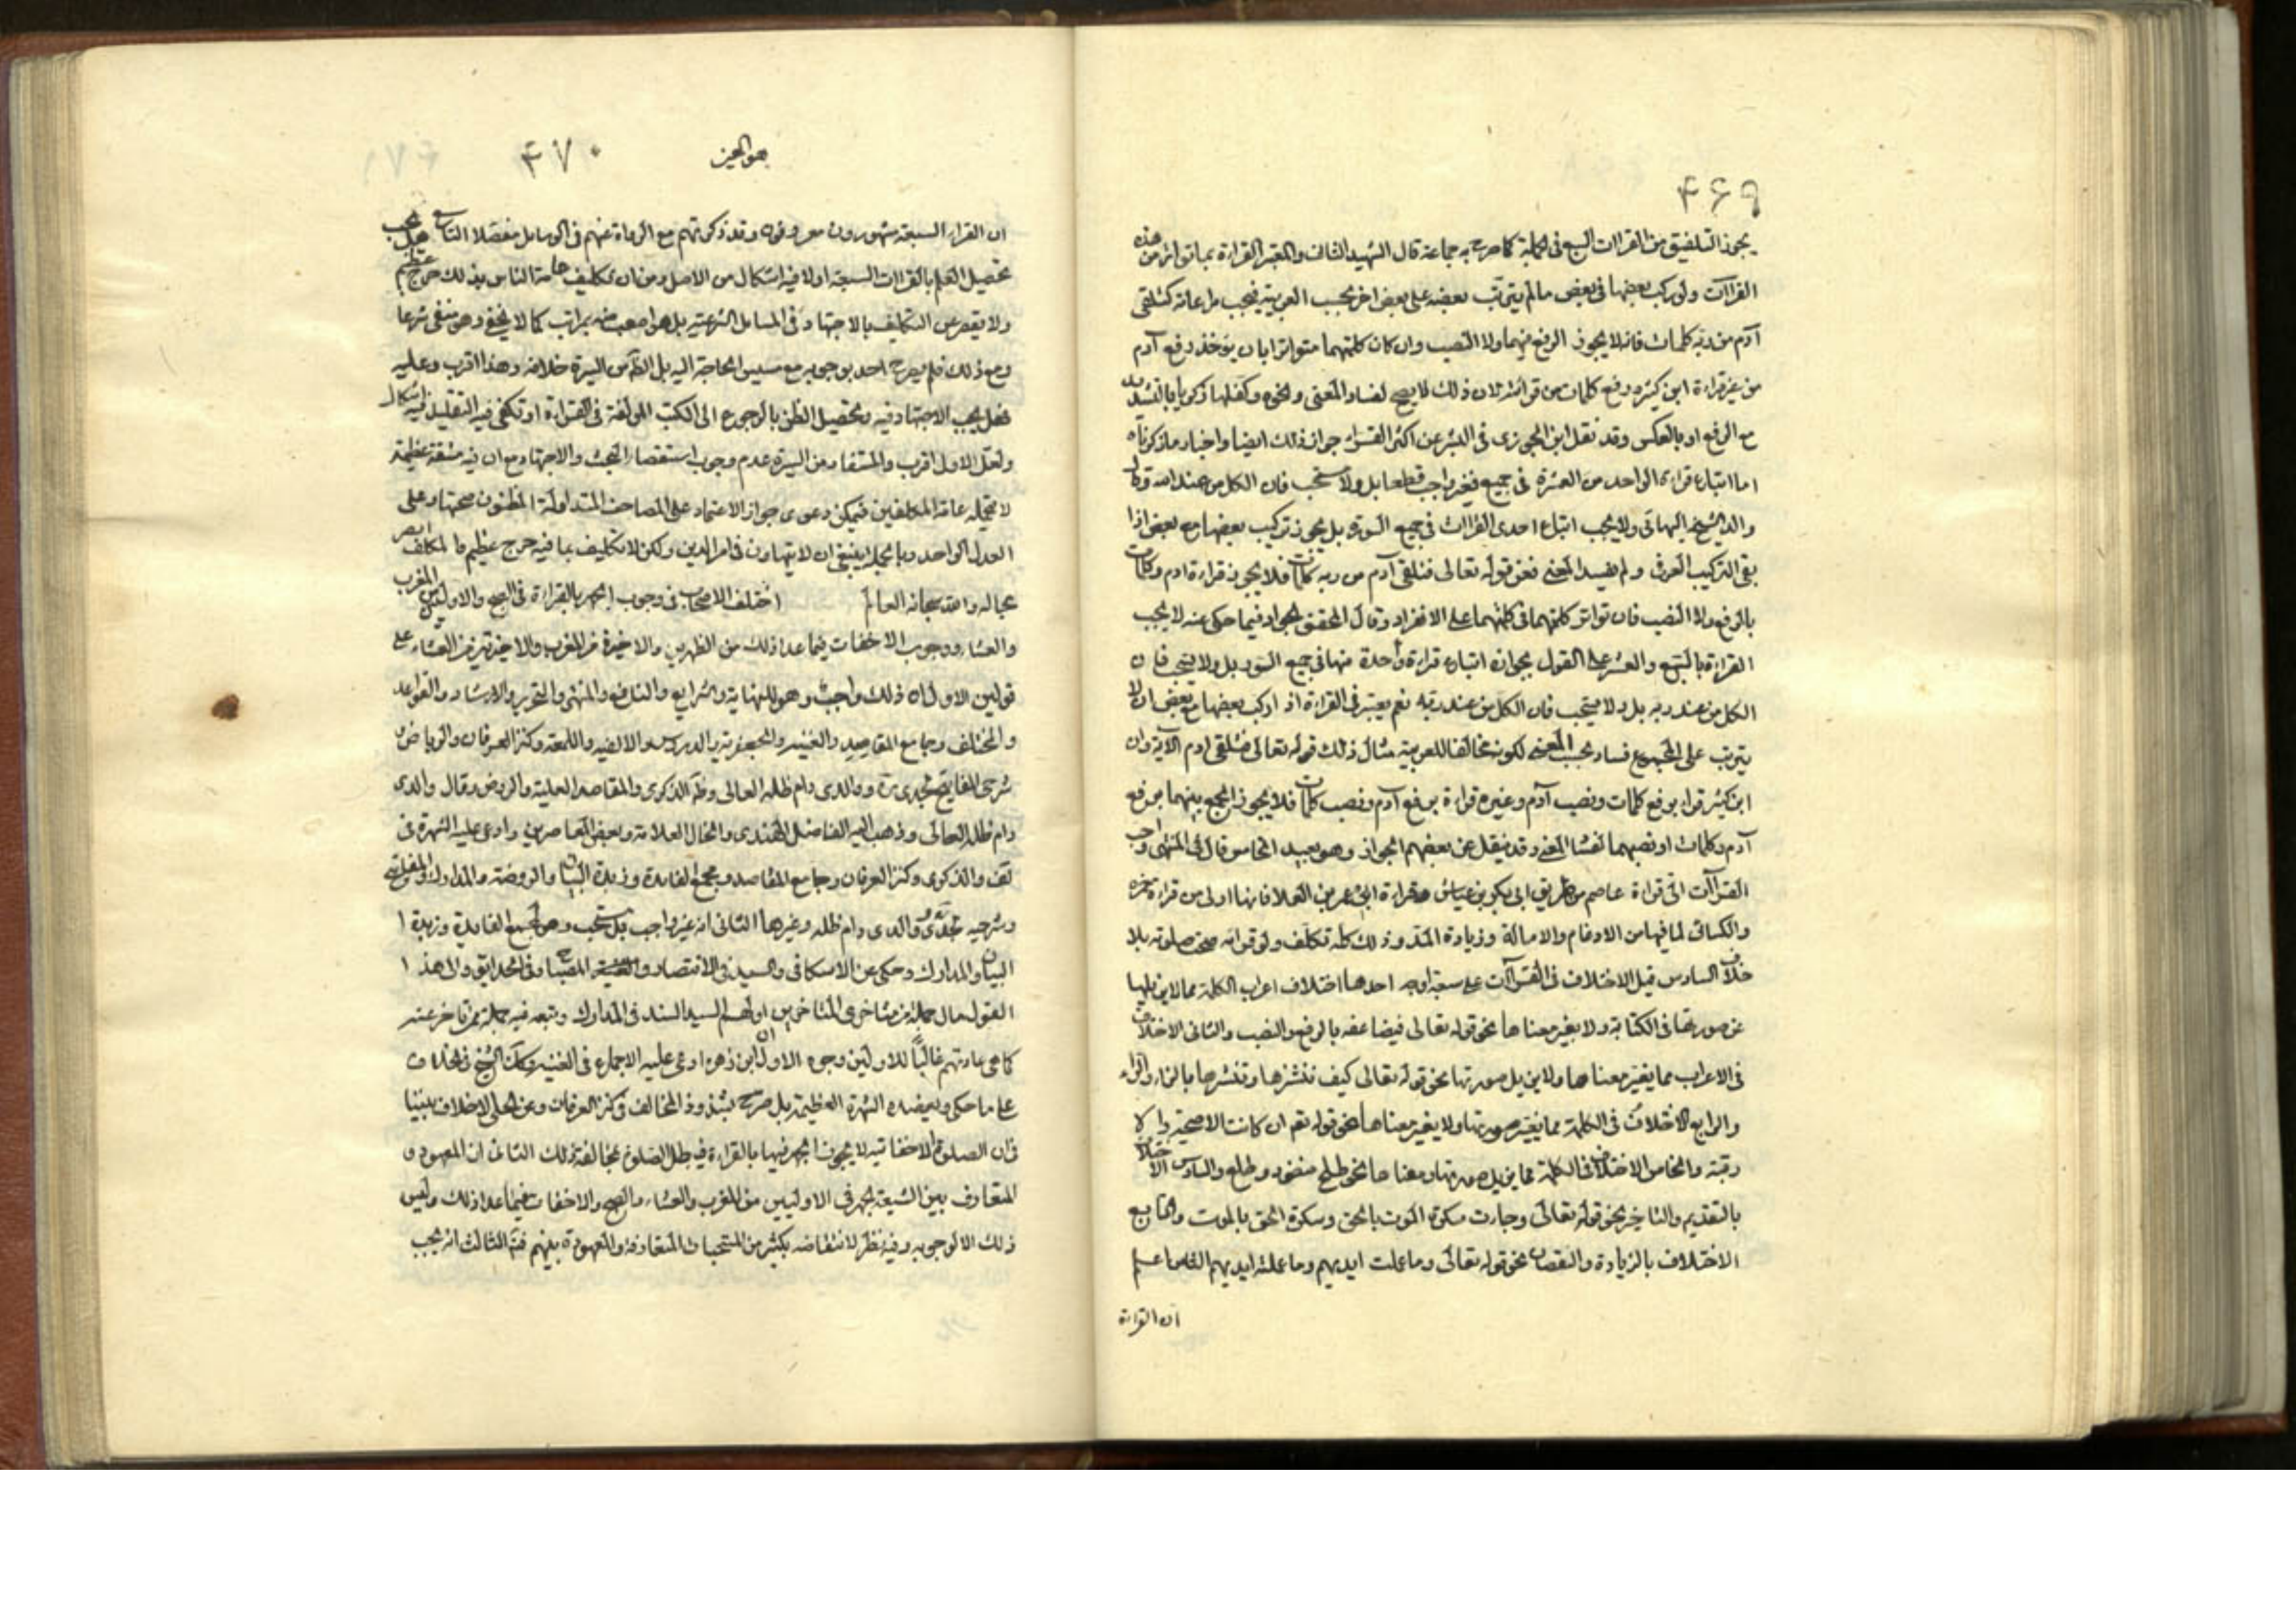 ۴۶۹
يجوز التلفيق من القراات السبع في الجملة كما صرح به جماعة قال الشهيد الثاني والمعتبر القراءة بما تواتر من هذه
القراآت ولو ركب بعضها في بعض ما لم يترتب بعضه على بعض اخر بحسب العربية فيجب مراعاته كتلقى
آدم من ربه كلمات فانه لا يجوز الرفع فيهما ولا النصب وان كان كل منهما متواترا بان يؤخذ رفع آدم
من غير قراءة ابن كثير ورفع كلمات من قرائته لان ذلك لا يصح لفساد المعنى ونحوه وكفلها زكريا بالتشديد
مع الرفع او بالعكس وقد نقل ابن الجوزى في النشر عن اكثر القراء جواز ذلك ايضا واختار ما ذكرناه
اما اتباع قراءة الواحد من العشرة في جميع فغير واجب قطعا بل ولا مستحب فان الكل من عند الله وقال
والد الشيخ البهائى ولا يجب اتباع احدى القراات في جميع السورة بل يجوز تركيب بعضها مع بعض اذا
بقى التركيب العرفى ولم يفسد المعنى نحو قوله تعالى فتلقى آدم من ربه كلمات فلا يجوز قراءة ادم وكلمات
بالرفع ولا النصب فان تواتر كلمتهما في كلتيهما على الانفراد وقال المحقق الجواد فيما حكى عنه لا يجب
القراءة بالسبع والعشر على القول بجوازه اتباع قراءة واحدة منها في جميع السور بل ولا يستحب فان
الكل من عند ربه بل ولا يستحب فان الكل من عند ربه نعم يعتبر في القراءة اذ اركب بعضها مع بعض ان لا
يترتب على المجموع فساد بحسب المعنى لكونه مخالفا للعربية مثال ذلك قوله تعالى فتلقى ادم الآية وان
ابن كثير قراء برفع كلمات ونصب آدم وغيره قراءة برفع آدم ونصب كلمات فلا يجوز الجمع بينهما برفع
آدم وكلمات او نصبهما لفساد المعنى وقد ينقل عن بعضهم الجواز وهو بعيد الخامس قال في المنتهى واحب
القراآت الىّ قراءة عاصم من طريق ابى بكر بن عياش وقراءة ابى عمر بن العلا فانها اولى من قراءة حمزة
والكسائى لما فيها من الادغام والامالة وزيادة المد وذلك كله تكلف ولو قرا به صحت صلوته بلا
خلاف السادس قيل الاختلاف في القراآت على سبعة اوجه احدها اختلاف اعراب الكلمة مما لا يزيلها
عن صورتها في الكتابة ولا يغير معناها نحو قوله تعالى فيضاعفه بالرفع والنصب والثانى الاختلاف
في الاعراب مما يغير معناها ولا يزيل صورتها نحو قوله تعالى كيف ننشزها وننشرها بالزاء والراء
والرابع الاختلاف في الكلمة مما يغير صورتها ولا يغير معناها نحو قوله تعم ان كانت الا صيحة والا
زقية والخامس الاختلاف في الكلمة مما يزيل صورتها ومعناها نحو طلح منضود وطلع والسادس الاختلاف
بالتقديم والتاخير نحو قوله تعالى وجاءت سكرة الموت بالحق وسكرة الحق بالموت والسابع
الاختلاف بالزيادة والنقصان نحو قوله تعالى وما عملت ايديهم وما عملته ايديهم الثامن اعلم
ان القراءة
۴۷۰
ان القراء السبعة مشهورون معروفون وقد ذكرتهم مع الرواة عنهم في الوسايل مفصلا التاسع هل يجب
تحصيل العلم بالقراات السبعة اولا فيه اشكال من الاصل ومن ان تكليف عامة الناس بذلك حرج عظيم
ولا يقصر عن التكليف بالاجتهاد في المسايل الشرعية بل هو اصعب منه بمراتب كما لا يخفى وهو منفى شرعا
ومع ذلك فلم يصرح احد بوجوبه مع مسيس الحاجة اليه بل الظ من السيرة خلافه وهذا اقرب وعليه
فهل يجب الاجتهاد فيه وتحصيل الظن بالرجوع الى الكتب المولفة في القراءة او تكفى فيه التقليل فيه اشكال
ولعل الاول اقرب والمستفاد من السيرة عدم وجوب استقصار البحث والاجتهاد مع ان فيه مشقة عظيمة
لا تتحمله عامة المكلفين فيمكن دعوى جواز الاعتماد على المصاحف المتداولة المظنون صحتها وعلى
العدل الواحد وبالجملة ينبغى ان لا يتهاون في امر الدين ولكن لا تكليف بما فيه حرج عظيم والمكلف ابصر
بحاله والله سبحانه العالم اختلف الاصحاب في وجوب الجهر بالقراءة في الصبح والاوليين من المغرب
والعشاء ووجوب الاخفات فيما عدا ذلك من الظهرين والاخيرة من المغرب والاخيرتين من العشاء على
قولين الاول ان ذلك واجب وهو للنهاية والشرايع والنافع والمنتهى والتحرير والارشاد والقواعد
والمختلف وجامع المقاصد والغنية والجعفرية والدروس والالفية واللمعة وكنز العرفان والرياض و
شرحى المفاتيح لجدى ره ووالدى دام ظله العالى وظ الذكرى والمقاصد العلية والروض وقال والدى
دام ظله العالى وذهب اليه الفاضل الهندى والخال العلامة وبعض المعاصرين وادعى عليه الشهرة في
لف والذكرى وكنز العرفان وجامع المقاصد ومجمع الفايدة وزبدة البيان والروضة والمدارك والمفاتيح
وشرحيه لجدى ووالدى دام ظله وغيرها الثانى انه غير واجب بل مستحب وهو لمجمع الفايدة وزبدة
البيان والمدارك وحكى عن الاسكافى والسيد في الانتصار والمصباح وفى الحدايق والى هذا
القول مال جملة من متاخرى المتاخرين اولهم السيد السند في المدارك وتبعه فيه جملة من تاخر عنه
كما هى عادتهم غالبًا للاولين وجوه الاول ان ابن زهرة ادعى عليه الاجماع في الغنية وكذا الشيخ في الخلاف
على ما حكى ويعضده الشهرة العظيمة بل صرح بشذوذ المخالف في كنز العرفان وعن الحلى لا خلاف بيننا
في ان الصلوة الاخفاتية لا يجوز الجهر فيها بالقراءة فيبطل الصلوة بمخالفة ذلك الثانى ان المعهود و
المتعارف بين الشيعة الجهر في الاوليين من المغرب والعشاء والصبح والاخفات فيما عدا ذلك وليس
ذلك الا لوجوبه وفيه نظر لانتقاضه بكثير من المستحبات المتعارفة والمعهودة بينهم فتم الثالث انه يجب